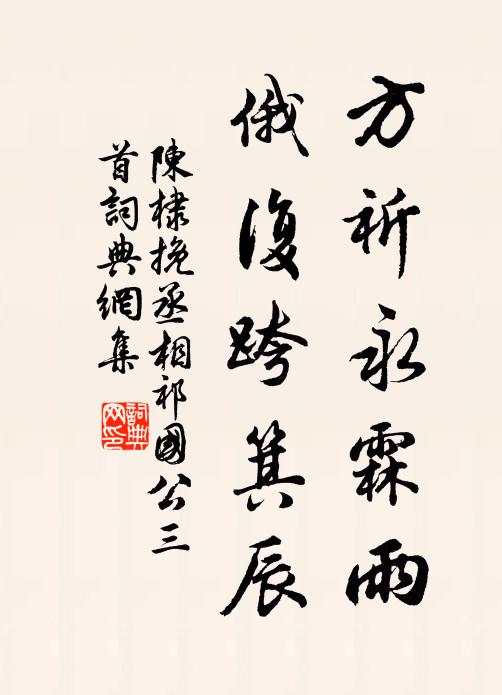 方祈永霖雨
俄復跨箕辰
陳棣挽丞相祁國公三
首詞典網集
詞典
网印